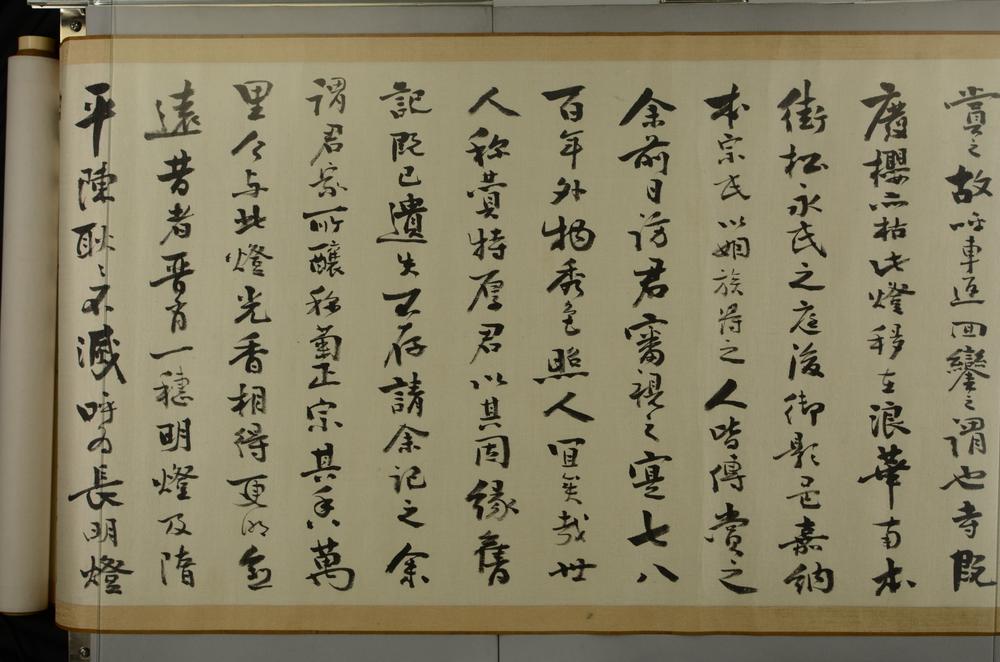 賞之故呼車返回鑾之謂也寺既
廢櫻亦枯此燈移在浪華南本
街松永氏之庭後御影邑嘉納
本宗氏以姻族得之人皆傳賞之
余前日訪君審視之寔七八
百年外物秀色照人宜矣哉世
人称賞特厚君以其因緣舊
記既已遺失不存請余記之余
謂君家所釀称菊正宗其香之萬
里今与此燈光香相得更明益
遠昔者晋有一穗明燈及隋
平陳耿々不滅呼為長明燈